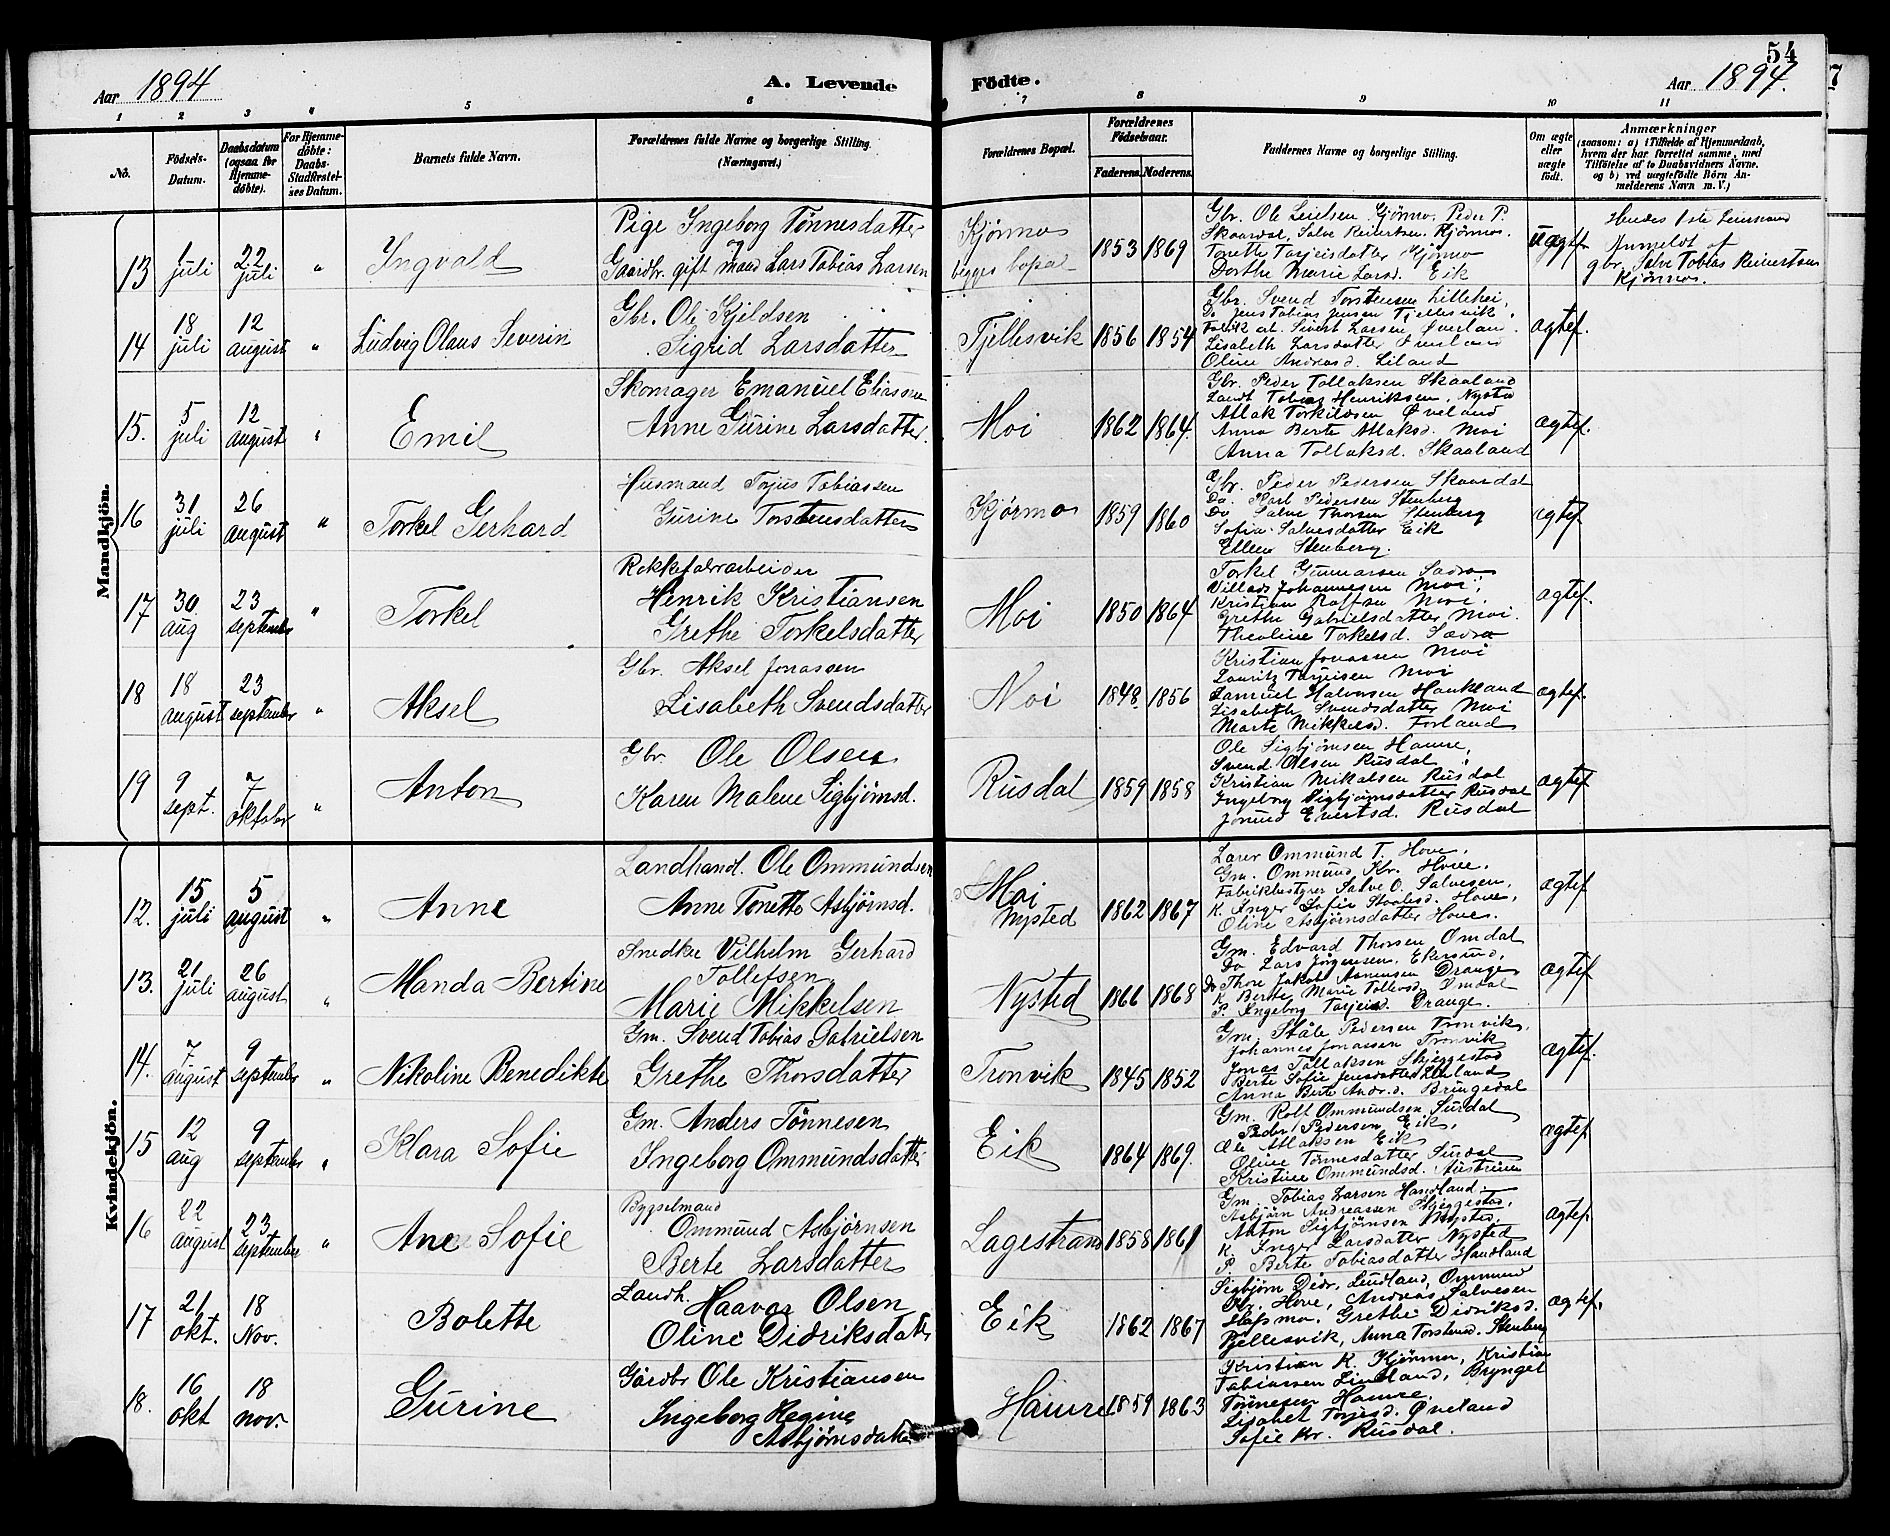 54
Aar 1894
A. Levende Födte.
Aar 1894.
1 2 3 4 5 6 7 8 9 10 11
No.
Födsels-
Datum.
Daabsdatum
(ogsaa for
Hjemme-
döbte).
For Hjemme-
döbte:
Daabs-
Stadfæstel-
ses Datum.
Barnets fulde Navn.
Forældrenes fulde Navne og borgerlige Stilling.
(Næringsvei.)
Forældrenes Bopæl.
Forældrenes
Födselsaar.
Faderens. Moderens.
Faddernes Navne og borgerlige Stilling.
Om ægte
eller
uægte
födt.
Anmærkninger
(saasom: a) i Tilfælde af Hjemmedaab,
hvem der har forrettet samme, med
Tilföielse af to Daabsvidners Navne.
og b) ved uægtefödte Börn An-
melderens Navn m. V.)
Mandkjön.
13
1
juli
22
juli
"
Ingvald
Pige Ingeborg Tönnesdatter
Gaardbr. gift mand Lars Tobias Larsen
Kjörmo
begges bopæl
1853 1869
Gbr. Ole Kjörmo, Peder P.
Skaardal, Salve Reinertsen Kjörmo.
Tonette Tarjeisdatter Kjörmo
Dorthe Marie Larsd. Eik
Uægtef.
Hendes 1ste
Anmeldt af
gbr. Salve Tobias Reinertsen
Kjörmo.
14
18
juli
12
august
"
Ludvig Olaus Severin
Gbr. Ole Kjeldsen
Sigrid Larsdatter
Tjellesvik
1856 1854
Gbr. Svend Torstensen Lillehei,
Do Jens Tobias Jensen Tjellesvik,
Fabrik arb. Sivert Larsen Øverland.
Lisabeth Larsdatter Øverland
Oline Andreasd. Liland
ægtef.
15.
5
juli
12
august
"
Emil
Skomager Emanuel Eliassen
Anne Gurine Larsdatter.
Moi
1862 1864.
Gbr. Peder Tollaksen Skaaland
Landh Tobias Henriksen, Nysted
Atlak Torkildsen Øveland
Anna Berte Atlaksd. Moi
Anna Tollaksd. Skaaland
ægtef.
16
31
juli
26
august
"
Torkel Gerhard
Husmand Torjus Tobiassen
Gurine Torstensdatter
Kjörmo
1859 1860
Gbr. Peder Pedersen Skaardal
Do. Karl Pedersen Stenberg
Do Salve Thorsen Stenberg
Sofia Salvesdatter Eik
Ellen Stenberg.
ægtef
17
30
aug
23
september
"
Torkel
Rokkefabrarbeider
Henrik Kristiansen
Grethe Torkelsdatter
Moi
1850 1864
Torkel Gunnarsen Sædra
Villads Johannesen Moi,
Kristian Rolfsen Moi.
Grethe Gabrielsdatter Moi.
Theoline Torkelsd. Sædra
ægtef.
18
18
august
23
september
"
Aksel
Gbr. Aksel Jonassen
Lisabeth Svendsdatter
Moi
1848 1856
Kristian Jonassen Moi
Lauritz Tarjeisen Moi
Samuel Halvorsen Haukland
Lisabeth Svendsdatter Moi
Marte Mikkelsd. Forland
ægtef.
19
9
sept.
7
oktober
"
Anton
Gbr. Ole Olsen
Karen Malene Sigbjörnsd.
Rusdal
1859 1858
Ole Sigbjörnsen Hamre,
Svend Olsen Rusdal
Kristian Mikalsen Rusdal
Ingeborg Sigbjörnsdatter Rusdal
Jorund Evertsd. Rusdal
ægtef
Kvindekjön.
12.
15
juli
5
august
"
Anne
Landhand. Ole Ommundsen
Anne Tonette Asbjörnsd.
Moi
Nysted
1862 1867
Lærer Ommund T. Hove.
Gm. Ommund Kr. Hove.
Fabrikbestyrer Salve O. Salvesen,
K. Inger Sofie Staalesd. Hove,
Oline Asbjörnsdatter Hove.
ægtef
13.
21
juli
26
august
"
Manda Bertine
Snedker Vilhelm Gerhard
Tollefsen
Marie Mikkelsen
Nysted
1866 1868
Gm. Edvard Thorsen Omdal
Do Lars Jörgensen, Ekersund,
Do Thore Jakob Asmensen Drange
K. Berte Marie Tollevsd. Omdal
P. Ingeborg Tarjeisd. Drange.
ægtef
14.
7
august
9
september
"
Nikoline Benedikte
Gm. Svend Tobias Gabrielsen
Grethe Thorsdatter
Tronvik
1845 1852
Gm. Ståle Pedersen Tronvik,
Johannes Jonassen Tronvik
Jonas Tollaksen Skjeggestad
Berte Sofie Jensdatter
Anna Berte Andr.d. Bringedal
ægtef.
15
12
aug
9
september
"
Klara Sofie
Gm. Anders Tönnesen
Ingeborg Ommundsdatter
Eik
1864 1869.
Gm. Rolf Ommundsen Surdal
Peder Pedersen Eik,
Ole Atlaksen Eik
Oline Tönnesdatter Surdal
Kristine Ommundsd. Austrum
ægtef
16
22
august
23
september
"
Ane Sofie
Bygselmand
Ommund Asbjörnsen
Berte Larsdatter
Lagestrand
1858 1861
Gm. Tobias Larsen Handland.
Asbjörn Andreassen Skjeggestad,
Anton Sigbjörnsen Nysted.
K. Inger Larsdatter Nysted
P. Berte Tobiasdatter Handland
ægtef.
17
21
okt.
18
Nov.
Bolette
Landh. Haavar Olsen
Oline Didriksdatter
Eik
1862 1867
Sigbjörn Didr. Lindland, Ommund
Kr. Hove, Andreas Salvesen
Slapmo. Grethe Didriksd.
Tjellesvik, Anna Torstensd. Stenberg
ægtef.
18.
16
okt
18
nov.
Gurine
Gårdbr Ole Kristiansen
Ingeborg Regine
Asbjörnsdatter
Hamre
1859 1863
Kristian K. Kjörmo, Kristian
Tobiassen Lindland, Brynjel
Tönnesen Hamre.
Lisabet Torjusd. Øveland
Sofie Kr. Rusdal.